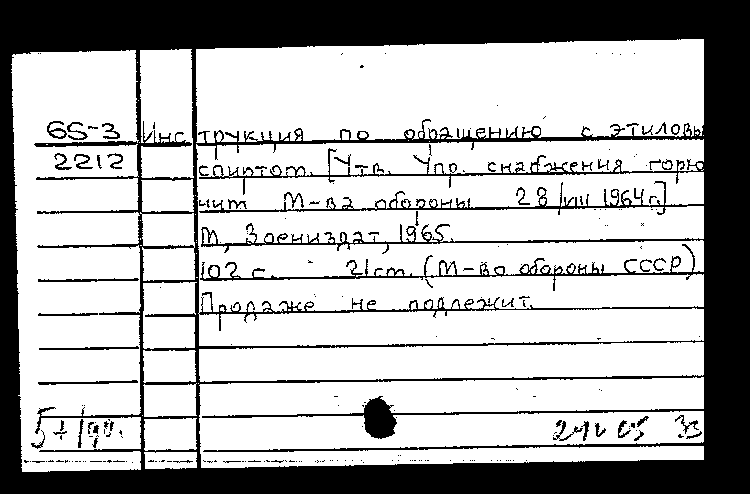 65-3 Инструкция по обращению с этиловы
2212 спиртом. [Утв. Упр. снабжения горю
чим М-ва обороны 28/VIII 1964г.]
М, Воениздат, 1965.
102 с. 21 см. (М-во обороны СССР)
Продаже не подлежит.